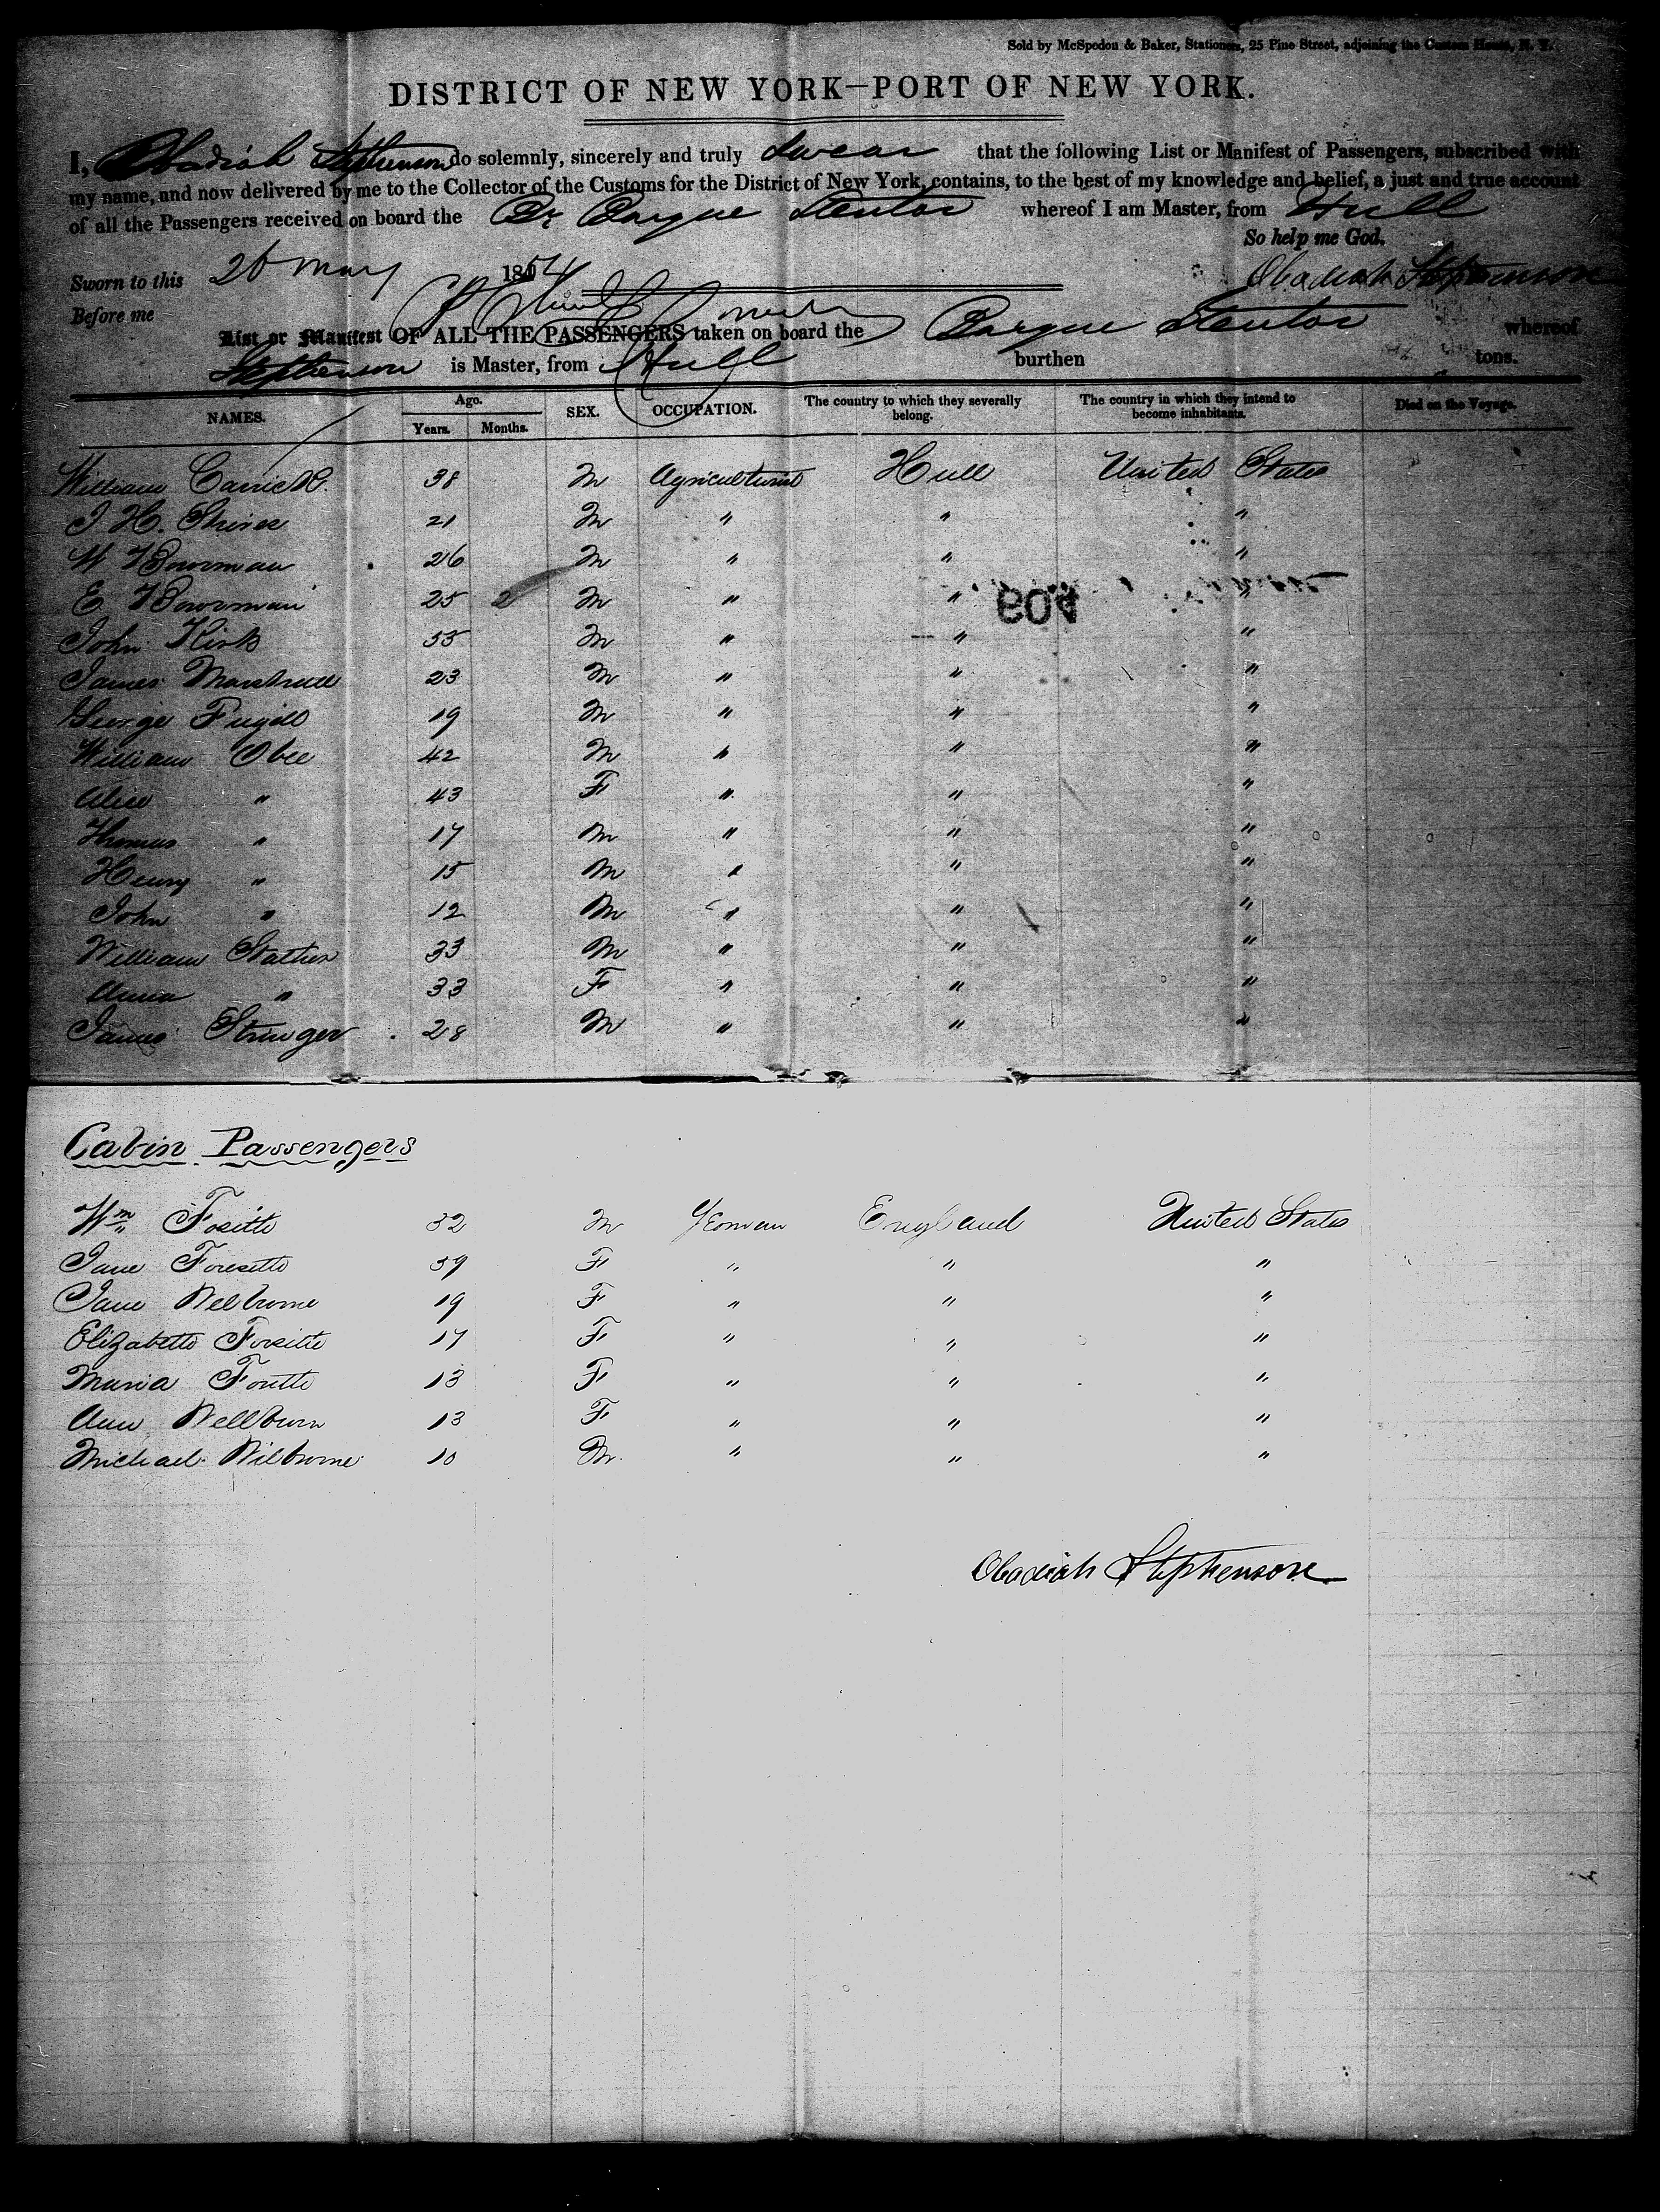 Sold by McSpedon & Baker, Stationers, 25 Pine Street, adjoining the Custom House, N. Y.
DISTRICT OF NEW YORK—PORT OF NEW YORK.
I, Obadiah Stephenson do solemnly, sincerely and truly swear that the following List or Manifest of Passengers, subscribed with
my name, and now delivered by me to the Collector of the Customs for the District of New York, contains, to the best of my knowledge and belief, a just and true account
of all the Passengers received on board the Br Barque Stentor whereof I am Master, from Hull
So help me God.
Sworn to this 26 May 1854 Obadiah Stephenson
Before me
List or Manifest OF ALL THE PASSENGERS taken on board the Barque Stentor whereof
Stephenson is Master, from Hull burthen tons.
NAMES. Age. Years. Months. SEX. OCCUPATION. The country to which they severally belong. The country in which they intend to become inhabitants. Died on the Voyage.
William Carrick 38 M Agriculturist Hull United States
J H. 21 M " " "
W Bowman 26 M " " "
E Bowman 25 2 M " " "
John Kirk 35 M " " "
604
James 23 M " " "
George Fugill 19 M " " "
William Obee 42 M " " "
Alice " 43 F " " "
Thomas " 17 M " " "
Henry " 15 M " " "
John " 12 M " " "
William Stather 33 M " " "
Anna " 33 F " " "
James Stringer 28 M " " "
Cabin Passengers
Wm 32 M Yeoman England United States
Jane 39 F " " "
Jane Welborne 19 F " " "
Elizabeth 17 F " " "
Maria 13 F " " "
Ann Wellburn 13 F " " "
Michael Wilborne 10 M. " " "
Obadiah Stephenson